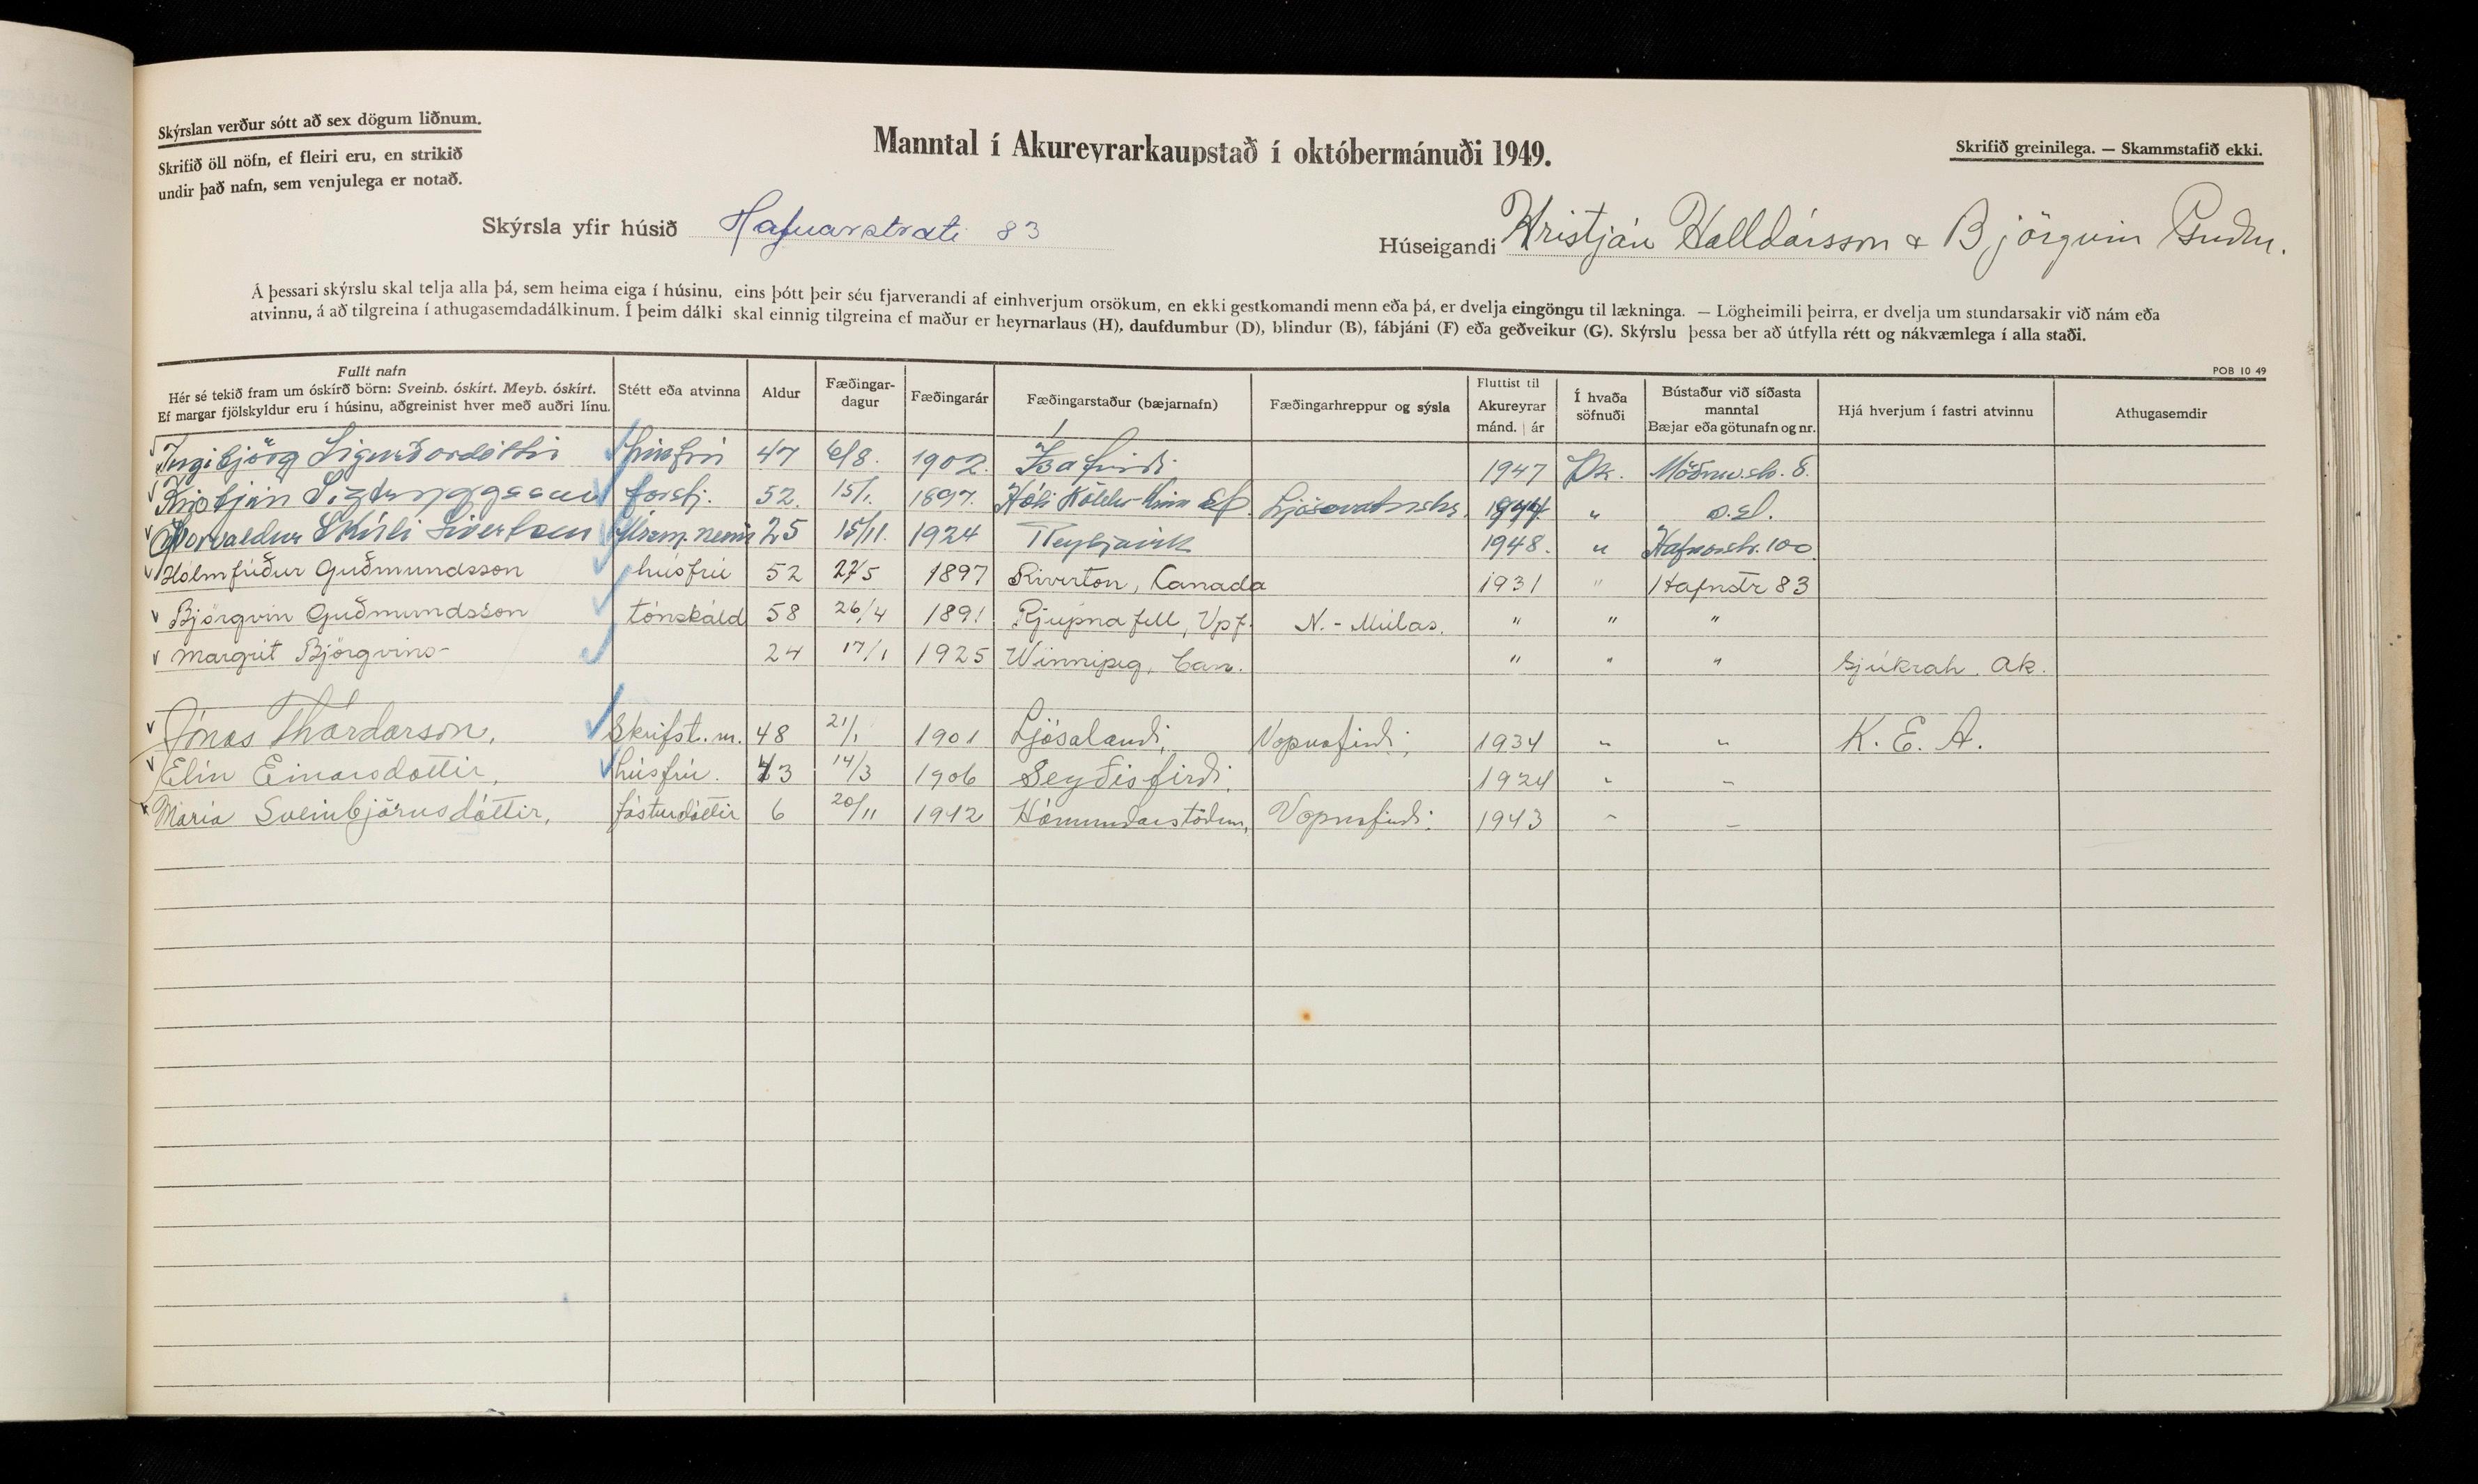 Skýrslan verður sótt að sex dögum liðnum.
Skrifið öll nöfn, ef fleiri eru, en strikið
undir það nafn, sem venjulega er notað.
Manntal í Akureyrarkaupstað í októbermánuði 1949.
Skrifið greinilega. — Skammstafið ekki.
Skýrsla yfir húsið Hafnarstræti 83
Húseigandi Kristján Halldórsson & Björgvin Guðm.
Á þessari skýrslu skal telja alla þá, sem heima eiga í húsinu, eins þótt þeir séu fjarverandi af einhverjum orsökum, en ekki gestkomandi menn eða þá, er dvelja eingöngu til lækninga. — Lögheimili þeirra, er dvelja um stundarsakir við nám eða
atvinnu, á að tilgreina í athugasemdadálkinum. Í þeim dálki skal einnig tilgreina ef maður er heyrnarlaus (H), daufdumbur (D), blindur (B), fábjáni (F) eða geðveikur (G). Skýrslu þessa ber að útfylla rétt og nákvæmlega í alla staði.
POB 10 49
Fullt nafn
Hér sé tekið fram um óskírð börn: Sveinb. óskírt. Meyb. óskírt.
Ef margar fjölskyldur eru í húsinu, aðgreinist hver með auðri línu.
Stétt eða atvinna
Aldur
Fæðingar-
dagur
Fæðingarár
Fæðingarstaður (bæjarnafn)
Fæðingarhreppur og sýsla
Fluttist til
Akureyrar
mánd. | ár
Í hvaða
söfnuði
Bústaður við síðasta
manntal
Bæjar eða götunafn og nr.
Hjá hverjum í fastri atvinnu
Athugasemdir
Ingibjörg Sigurðardóttir húsfrú 47 6/8. 1902. Ísafirði 1947 Þk. Möðruv.str. 8.
Kristján Sigtryggsson forstj. 52. 15/1. 1897. Hóli Köldu-Kinn Ljósavatnshr. 1947 " s.st.
Þorvaldur Skúli Sívertsen 25 15/11. 1924 Reykjavík 1948. " Hafnarstr. 100
Hólmfríður Guðmundsson húsfrú 52 27/5 1897 Riverton, Canada 1931 " Hafnstr 83
Björgvin Guðmundsson tónskáld 58 26/4 1891 Rjúpnafell, Vpf. N.-Múlas. " " "
Margrét Björgvins- 24 17/1 1925 Winnipeg, Can. " " " Sjúkrah. Ak.
Jónas Thórdarson, Skrifst.m. 48 21/1 1901 Ljósalandi, Vopnafirði, 1934 " " K. E. A.
Elín Einarsdóttir, húsfrú. 43 14/3 1906 Seyðisfirði, 1924 " "
María Sveinbjörnsdóttir, fósturdóttir 6 20/11 1942 Hámundarstöðum, Vopnafirði. 1943 " "